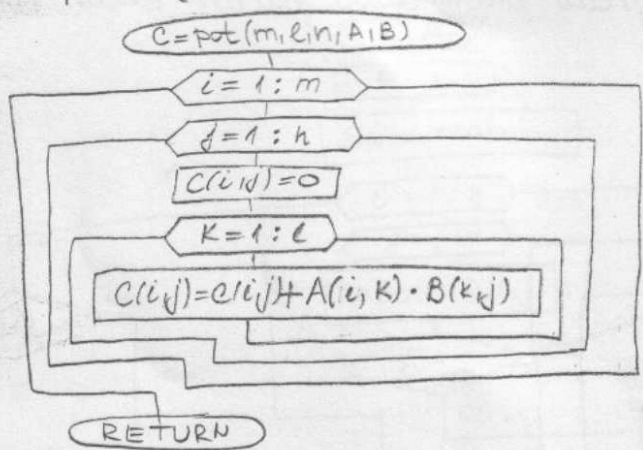 C=pot(m,l,n,A,B)
i=1:m
j=1:n
C(i,j)=0
K=1:l
C(i,j)=C(i,j)+A(i,K)·B(k,j)
RETURN